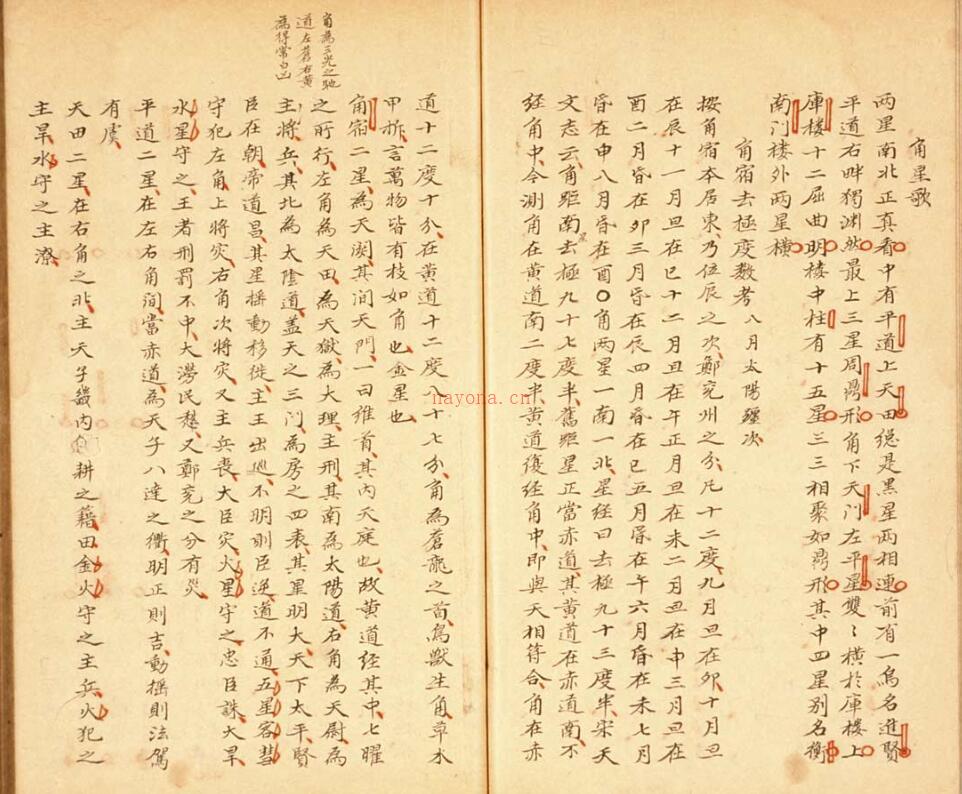 角星歌
两星南北正真看中有平道上天田緫是黑星两相連前有一烏名進賢
平道右畔獨渊然最上三星周鼎形角下天门左平星雙〻横於庫樓上
庫樓十二屈曲明樓中柱有十五星三三相聚如鼎形其中四星别名衡
南门樓外两星横
角宿去極度数考八月太陽躔次
按角宿本居東乃位辰之次鄭兖州之分凡十二度九月旦在卯十月旦
在辰十一月旦在巳十二月旦在午正月旦在未二月旦在申三月旦在
酉二月昏在卯三月昏在辰四月昏在巳五月昏在午六月昏在未七月
昏在申八月昏在酉〇角两星一南一北星经曰去極九十三度半宋天
文志云角距南星去極九十七度半舊距星正當赤道其黄道在赤道南不
经角中今測角在黄道南二度半黄道復经角中即與天相符合角在赤
道十二度十分在黄道十二度八十七分角為蒼龍之首鳥獸生角草木
甲拆言萬物皆有枝如角也金星也
角為三光之馳
道左蒼右黄
為得常占凶
角宿二星為天闕其间天門一曰維首其内天庭也故黄道经其中七曜
之所行左角為天田為天獄為大理主刑其南為太陽道右角為天尉為
主將兵其北為太陰道盖天之三门為房之四表其星明大天下太平賢
臣在朝帝道昌其星揺動移徙主王出廵不明則臣逆道不通五星客彗
守犯左角上將灾右角次將灾又主兵喪大臣灾火星守之忠臣誅大旱
水星守之王者刑罰不中大澇民愁又鄭兖之分有灾
平道二星在左右角间當赤道為天子八達之衢明正則吉動揺則法駕
有虞
天田二星在右角之北主天子畿内耕之籍田金火守之主兵火犯之
主旱水守之主潦
nayona.cn